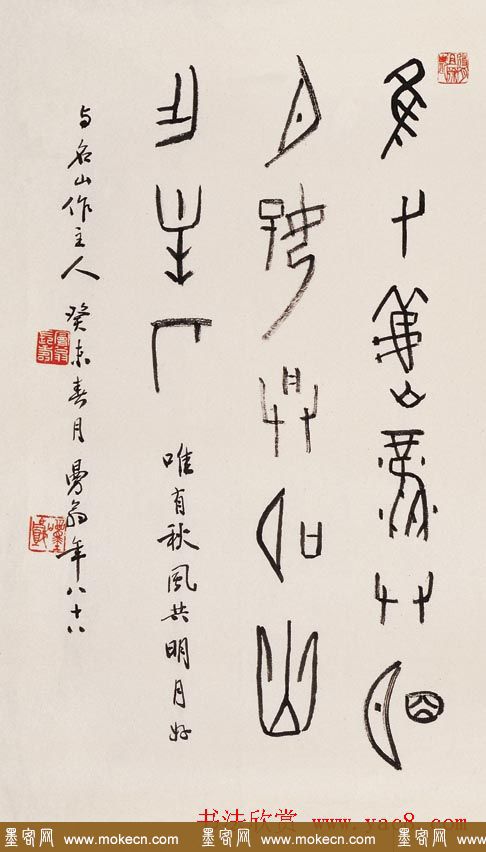 隹又秋風共明
月好與名山
作主人
唯有秋風共明月好
与名山作主人 癸未春月曼翁年八十八
书法欣赏 www.yac8.com
墨客网 www.mokecn.com 墨客网 www.mokecn.com 墨客网